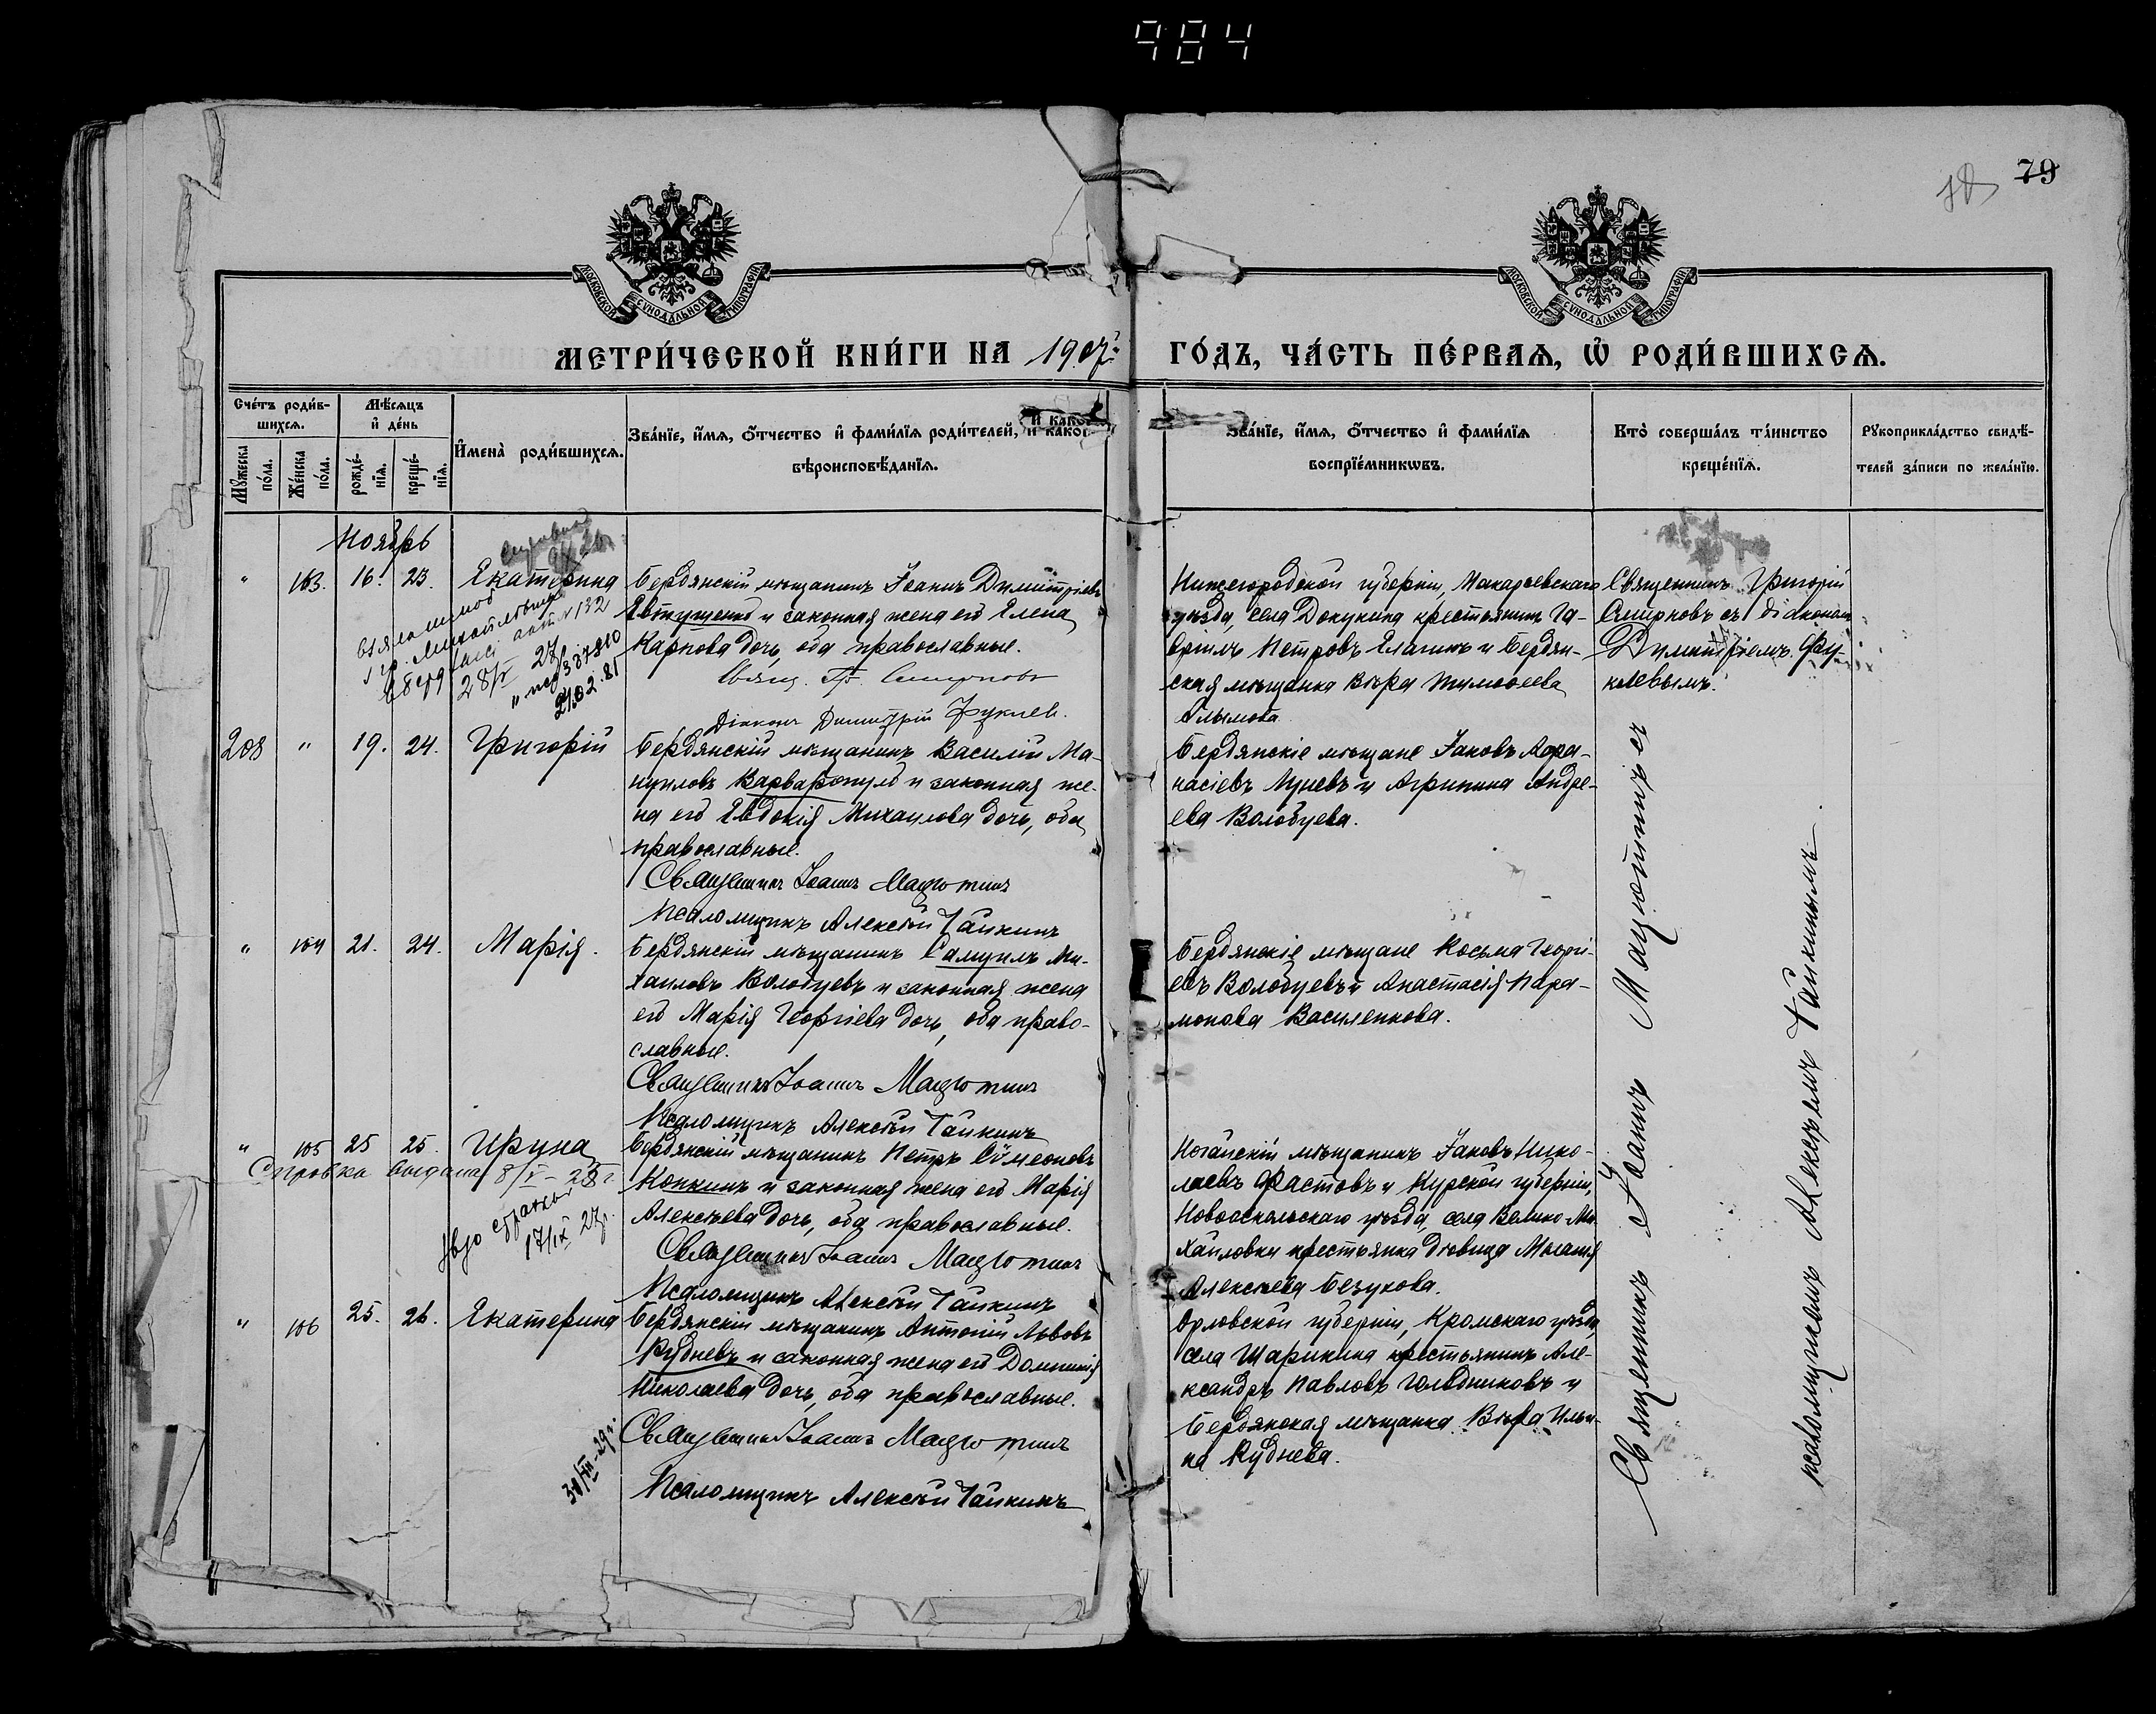 984
79
МОСКОВСКОЙ СѴНОДАЛЬНОЙ ТИПОГРАФІИ
МОСКОВСКОЙ СѴНОДАЛЬНОЙ ТИПОГРАФІИ
МЕТРИ́ЧЕСКОЙ КНИ́ГИ НА 1907й ГО́ДЪ, ЧА́СТЬ ПЕ́РВАѦ, Ѡ҆ РОДИ́ВШИХСѦ.
Сче́тъ роди́в-
шихсѧ.
Мꙋ́жеска по́ла.
Же́нска по́ла.
Мѣ́сѧцъ и҆ де́нь
рожде́-
нїѧ.
креще́-
нїѧ.
И҆мена̀ роди́вшихсѧ.
Зва́нїе, и҆́мѧ, ѻ҆́тчество и҆ фами́лїѧ роди́телей, и҆ како́гѡ
вѣроисповѣ́данїѧ.
Зва́нїе, и҆́мѧ, ѻ҆́тчество и҆ фами́лїѧ
воспрїе́мникѡвъ.
Кто̀ соверша́лъ та́инство
креще́нїѧ.
Рꙋкоприкла́дство свидѣ́-
телей за́писи по жела́нїю.
Ноябрь
" 103. 16. 23. Екатерина
Бердянскій мѣщанинъ Іоаннъ Димитріевъ
Евтушенко и законная жена его Елена
Карпова дочь, оба православные.
Свящ. Гр. Смирновъ
Діаконъ Димитрій Фуклев.
Нижегородской губерніи, Макарьевскаго
уѣзда, села Докукина крестьянинъ Га-
вріилъ Петровъ Елагинъ и Бердян-
ская мѣщанка Вѣра Тимоѳеева
Алымова.
Священникъ Григорій
Смирновъ съ діакономъ
Димитріемъ Фу-
клевымъ.
акт № 132
28/V 27
337810
2.02.81
208 " 19. 24. Григорій
Бердянскій мѣщанинъ Василій Ма-
нуиловъ Варваропуло и законная же-
на его Евдокія Михаилова дочь, оба
православные.
Священникъ Іоаннъ Мацютинъ
Псаломщикъ Алексѣй Тайкинъ
Бердянскіе мѣщане Іаковъ Аѳа-
насіевъ Луневъ и Агрипина Андре-
ева Волобуева.
" 104 21. 24. Марія.
Бердянскій мѣщанинъ Самуилъ Ми-
хаиловъ Волобуевъ и законная жена
его Марія Георгіева дочь, оба право-
славные.
Священникъ Іоаннъ Мацютинъ
Псаломщикъ Алексѣй Тайкинъ
Бердянскіе мѣщане Косьма Георгі-
евъ Волобуевъ и Анастасія Пара-
монова Василенкова.
" 105 25 25. Ирина
Справка выдана 8/V - 28 г.
17/IX 27г.
Бердянскій мѣщанинъ Петръ Сѵмеоновъ
Копкинъ и законная жена его Марія
Алексѣева дочь, оба православные.
Священникъ Іоаннъ Мацютинъ
Псаломщикъ Алексѣй Тайкинъ
Ногайскій мѣщанинъ Іаковъ Нико-
лаевъ Фастовъ и Курской губерніи,
Новооскольскаго уѣзда, села Велико-Ми-
хайловки крестьянка дѣвица Меланія
Алексѣева Безукова.
" 106 25. 26. Екатерина
30/VII-29г.
Бердянскій мѣщанинъ Антоній Львовъ
Рудневъ и законная жена его Домникія
Николаева дочь, оба православные.
Священникъ Іоаннъ Мацютинъ
Псаломщикъ Алексѣй Тайкинъ
Орловской губерніи, Кромскаго уѣзда,
села Шарикина крестьянинъ Але-
ксандръ Павловъ Голодниковъ и
Бердянская мѣщанка Вѣра Ильи-
на Руднева.
Священникъ Іоаннъ Мацютинъ съ
псаломщикомъ Алексѣемъ Тайкинымъ.